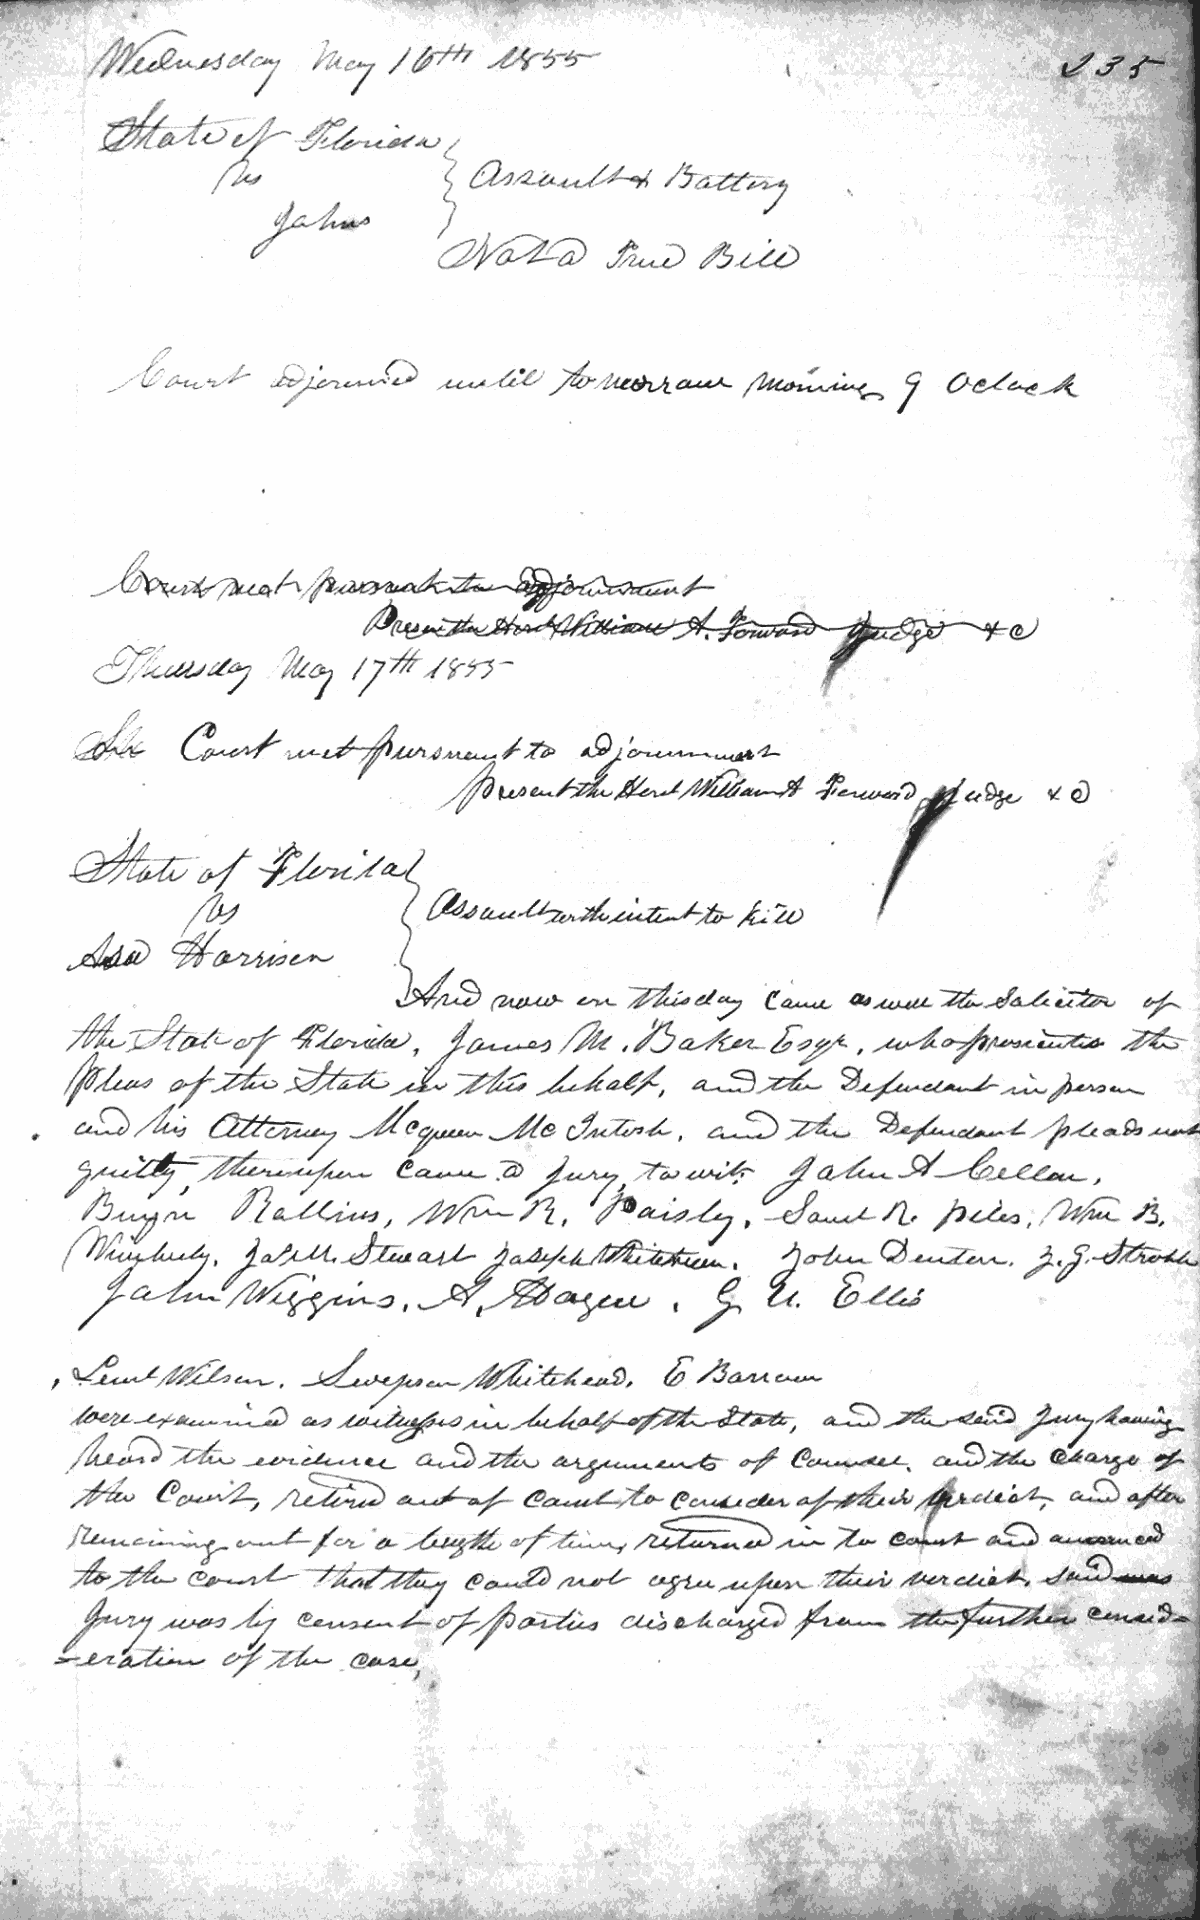 Wednesday May 16th 1855
235
State of Florida
vs
Johns
Assault & Battery
Not a True Bill
Court adjourned until tomorrow morning 9 Oclock
Court met pursuant to adjournment
Present the Honl William A. Forward Judge &c
Thursday May 17th 1855
Court met pursuant to adjournment
present the Honl William A Forward Judge &c
State of Florida
vs
Asa Harrison
Assault with intent to kill
And now on this day came as well the Solicitor of
the State of Florida, James M. Baker Esqr, who prosecutes the
Pleas of the State in this behalf, and the Defendant in person
and his Attorney Mcqueen McIntosh, and the Defendant pleads not
guilty, thereupon came a Jury, to wit, John A Cellon,
Rollins, Wm R. Paisly, Saml R. Piles, Wm B.
Wimberly, Jas M. Stewart Joseph Whitehurst. John Denton. J. G. Stroble
John Wiggins, A. Hagen, G U. Ellis
Leml Wilson, Swepson Whitehead, E Barrow
were examined as witnesses in behalf of the State, and the said Jury having
heard the evidence and the arguments of Counsel, and the charge of
the Court, retired out of Court to consider of their verdict, and after
remaining out for a length of time, returned in to court and announced
to the court that they could not agree upon their verdict. Said was
Jury was by consent of parties discharged from the further consid=
=eration of the case,